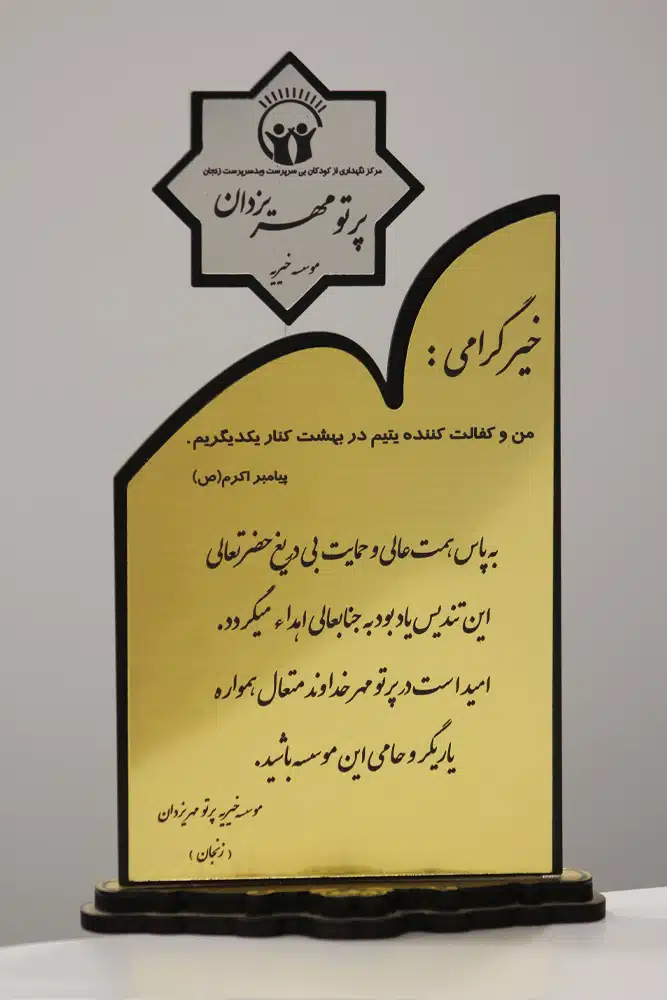 مرکز نگهداری از کودکان بی سرپرست وبدسرپرست زنجان
پرتو مهر یزدان
موسسه خیریه
خیر گرامی :
من و کفالت کننده یتیم در بهشت کنار یکدیگریم.
پیامبر اکرم(ص)
به پاس همت عالی و حمایت بی دریغ حضرتعالی
این تندیس یادبود به جنابعالی اهداء میگردد.
امید است در پرتو مهر خداوند متعال همواره
یاریگر و حامی این موسسه باشید.
موسسه خیریه پرتو مهر یزدان
( زنجان )